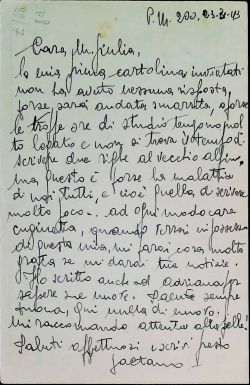 P.M. 200. 23-3-43
Cara M. Giulia,
la mia prima cartolina inviatati
non ha avuto nessuna risposta,
forse sarai andata smarrita, o forse
le troppe ore di studio tengono pol
to legato e non si trova il tempo di
scrivere due righe al vecchio alpino.
Ma questa è forse la malattia
di noi tutti, e cioè quella di scrivere
molto poco... ad ogni modo care
cuginetta, quando verrai in possesso
di questa mia, mi farai cosa molto
grata se mi darai tue notizie.
Ho scritto anche ad Adriana per
sapere sue nuove. Salute sempre
buona, qui nulla di nuovo.
Mi raccomando attento alla pelle!
Saluti affettuosi e scrivi presto
Gaetano